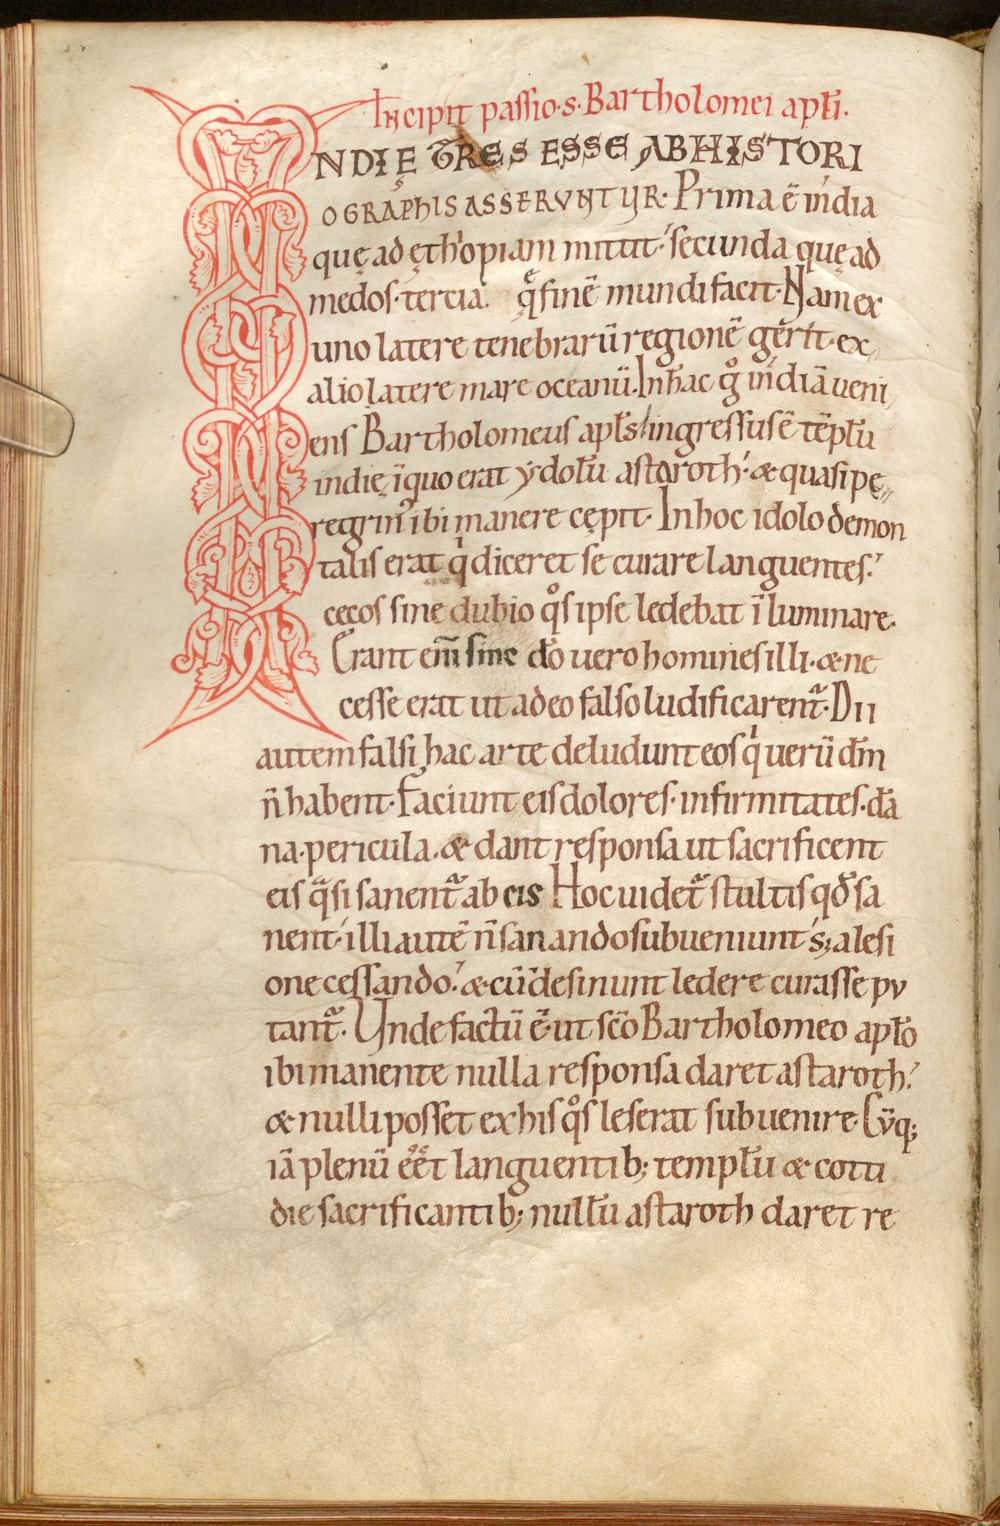 Incipit passio·s·Bartholomei apłi·
INDIĘ TRES ESSE AB HISTORI
OGRAPHIS ASSERUNTUR· Prima ē india
quę ad ęthiopiam mittit·ʹ secunda quę ad
medos· tertia quę finē mundi facit· Nam ex
uno latere tenebrarū regionē gerit· ex
alio latere mare oceanū. In hac gͦ indiā veni
ens Bartholomeus apłs ingressus ē tēplū
indię ī quo erat ydolū astaroth·ʹ & quasi pe
regrinꝰ ibi manere cępit· In hoc idolo demon
talis erat qͥ diceret se curare languentes·ʹ
cecos sine dubio qͦs ipse ledebat īluminare·
Erant eni͞m sine do͞ uero homines illi· & ne
cesse erat ut a deo falso ludificarent᷑· Dii
autem falsi hac arte deludunt eos qͥ uerū dm͞
n̄ habent· Faciunt eis dolores· infirmitates· dā
na· pericula· & dant responsa ut sacrificent
eis qͣsi sanent᷑ ab eis Hoc uidet᷑ stultis qđ sa
nent·ʹ illi autē n̄ sanando subueniunt· s; a lesi
one cessando·ʹ & cū desinunt ledere curasse pu
tant᷑· Unde factū ē· ut sc͞o Bartholomeo apło
ibi manente nulla responsa daret astaroth·ʹ
& nulli posset ex his qͦs leserat subuenire· Cūq;
iā plenū eēt languentib; templū & cotti
die sacrificantib; nullū astaroth daret re